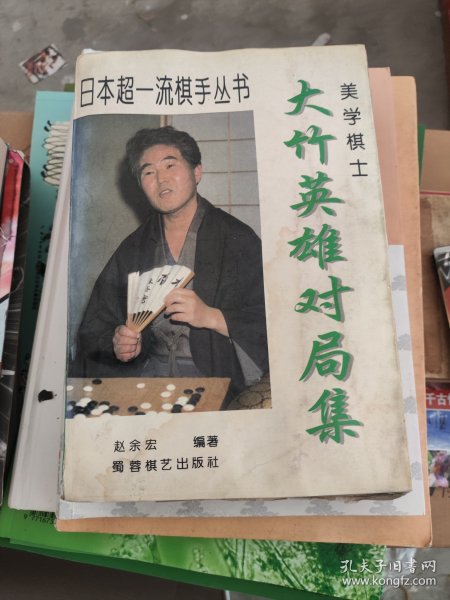 日本超一流棋手丛书
美学棋士
大竹英雄对局集
赵余宏 编著
蜀蓉棋艺出版社
千古
孔夫子旧书网
www.kongfz.com